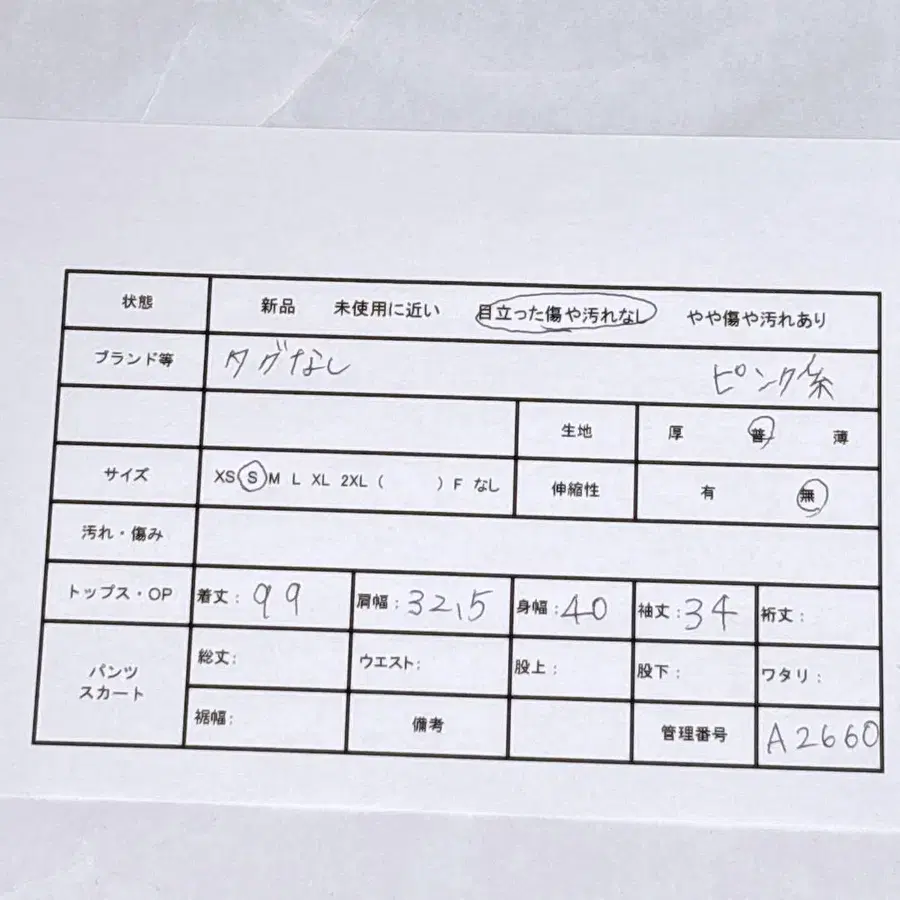 状態 新品 未使用に近い 目立った傷や汚れなし やや傷や汚れあり
ブランド等 タグなし ピンク系
生地 厚 普 薄
サイズ XS S M L XL 2XL ( ) F なし 伸縮性 有 無
汚れ・傷み
トップス・OP 着丈: 99 肩幅: 32,5 身幅: 40 袖丈: 34 裄丈:
パンツ
スカート
総丈: ウエスト: 股上: 股下: ワタリ:
裾幅: 備考 管理番号 A2660